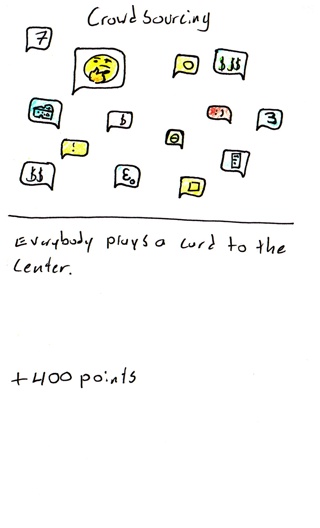 Crowdsourcing
7
$$$
$
3
!
$$
ε₀
Everybody plays a card to the
Center.
+400 points